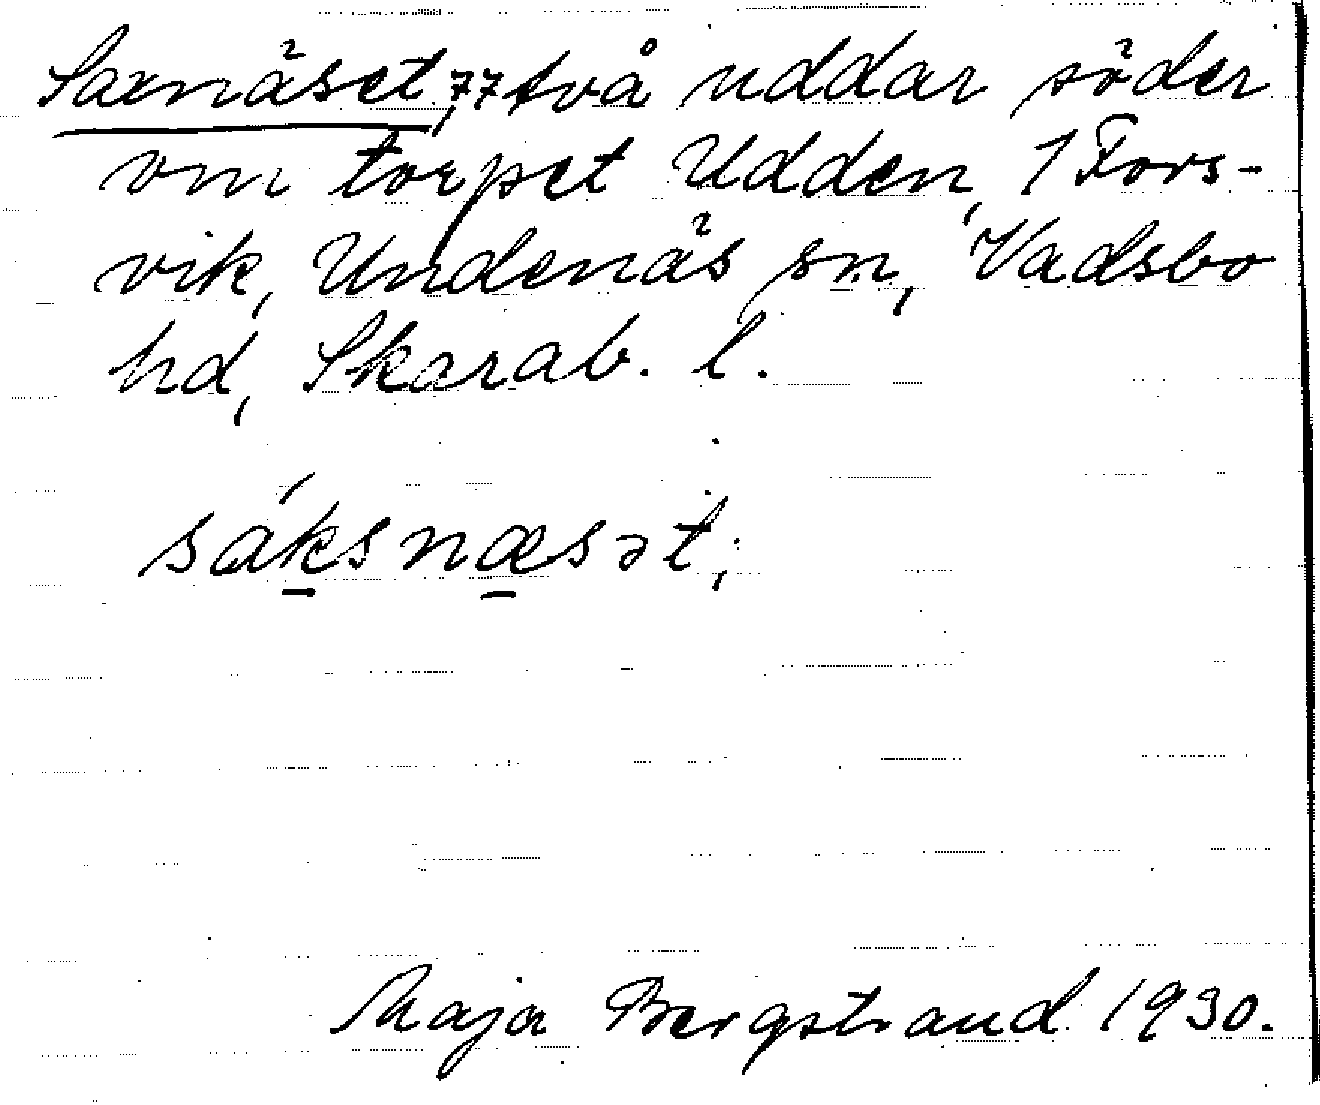 Saxnäset, 77 två uddar söder
om torpet Udden, 1 Fors-
vik, Undenäs sn, Vadsbo
hd, Skarab. l.
sáksnæsət;
Maja Bergstrand 1930.